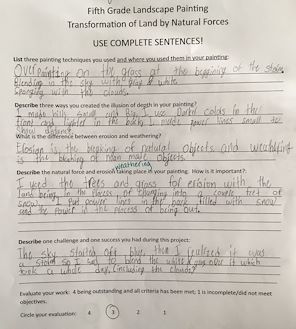 Fifth Grade Landscape Painting
Transformation of Land by Natural Forces
USE COMPLETE SENTENCES!
List three painting techniques you used and where you used them in your painting:
Overpainting on the grass at the beginning of the storm.
Blending in the sky with gray & white.
Sponging with the clouds.
Describe three ways you created the illusion of depth in your painting?
I made hills small and Big. I use Darker colors in the
front and lighter in the back. I made power lines small to
show distance.
What is the difference between erosion and weathering?
Erosion is the breaking of natural objects and weathering
is the breaking of man made objects.
weathering
Describe the natural force and erosion taking place in your painting. How is it important?:
I used the trees and grass for erosion with the
land being in the process of plunging into a couple feet of
snow. I put power lines in the back filled with snow
and the power in the process of being out.
Describe one challenge and one success you had during this project:
The sky started off blue, then I realized it was
a storm so I had to blend the white & gray over it which
took a whole day, (including the clouds).
Evaluate your work: 4 being outstanding and all criteria has been met; 1 is incomplete/did not meet
objectives.
Circle your evaluation: 4 3 2 1